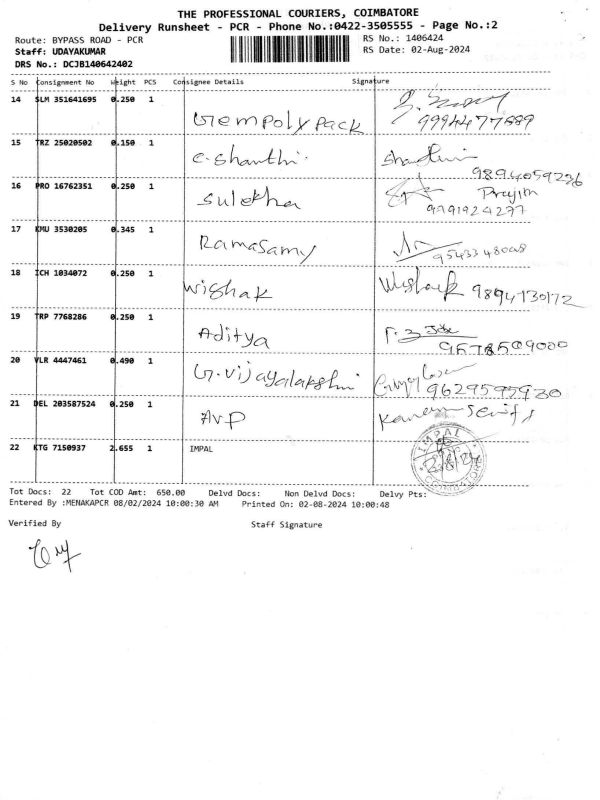 THE PROFESSIONAL COURIERS, COIMBATORE
Delivery Runsheet - PCR - Phone No.:0422-3505555 - Page No.:2
Route: BYPASS ROAD - PCR RS No.: 1406424
Staff: UDAYAKUMAR RS Date: 02-Aug-2024
DRS No.: DCJB140642402
S No Consignment No Weight PCS Consignee Details Signature
14 SLM 351641695 0.250 1 Gem poly pack
15 TRZ 25020502 0.150 1 C. Shanthi. 9894059236
16 PRO 16762351 0.250 1 Sulekha Prejith
17 KMU 3530205 0.345 1 Ramasamy
18 ICH 1034072 0.250 1 Wishak
19 TRP 7768286 0.250 1 Aditya
20 VLR 4447461 0.490 1 G. Vijayalakshmi 9629595930
21 DEL 203587524 0.250 1 AVP
22 KTG 7150937 2.655 1 IMPAL IMPAL 2/8/24
Tot Docs: 22 Tot COD Amt: 650.00 Delvd Docs: Non Delvd Docs: Delvy Pts:
Entered By :MENAKAPCR 08/02/2024 10:00:30 AM Printed On: 02-08-2024 10:00:48
Verified By Staff Signature